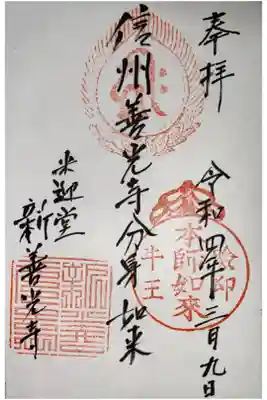 奉拝
令和四年三月九日
信州善光寺分身如来
来迎堂
新善光寺
本師如来
牛王
宝印